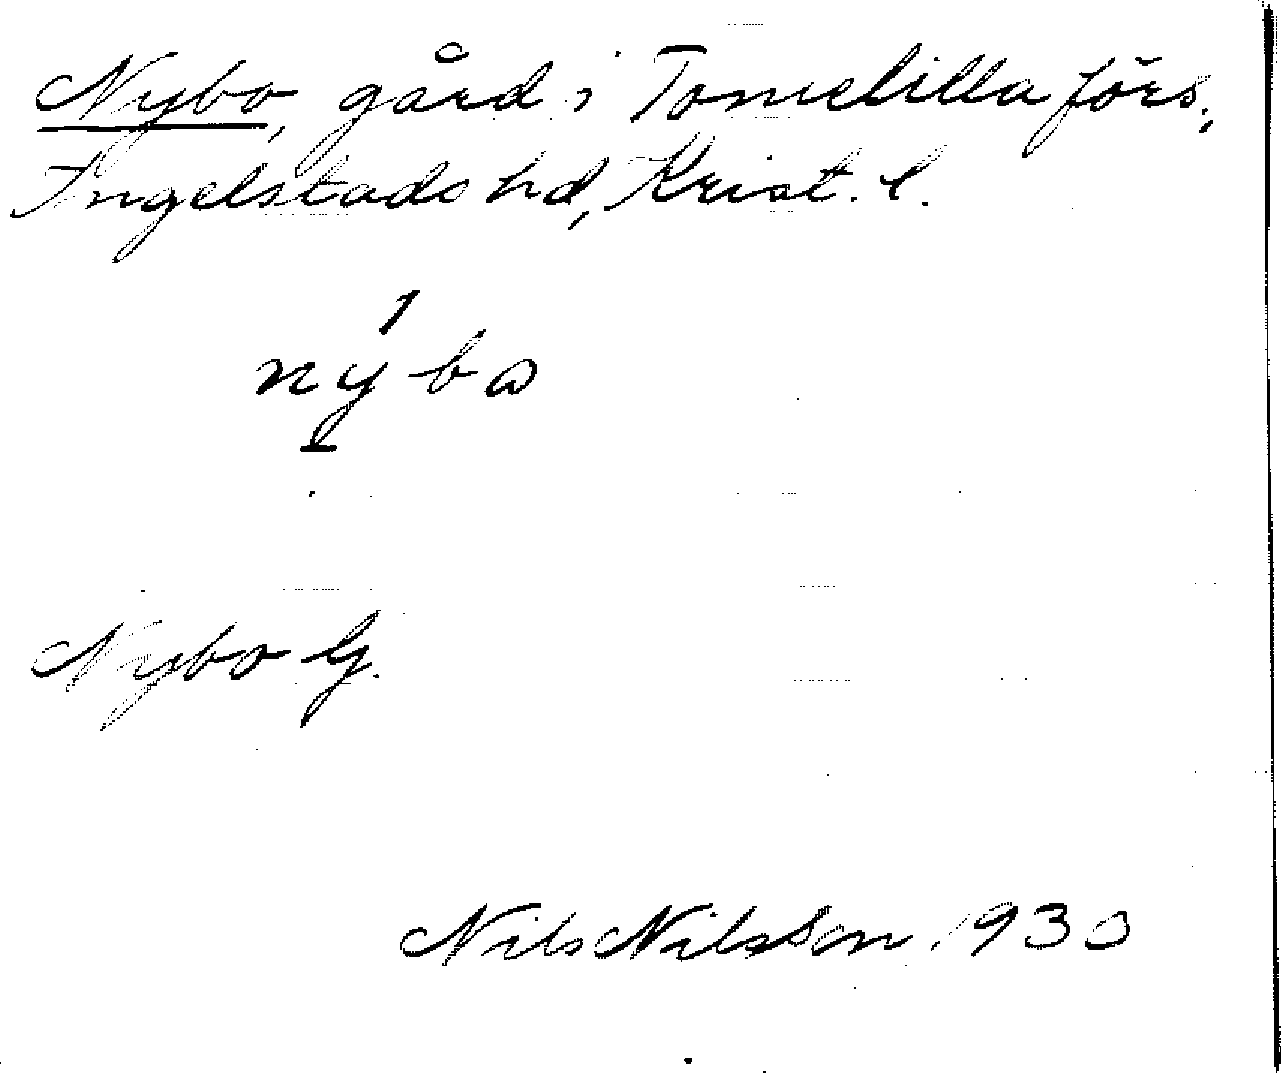 Nybo, gård i Tomelilla förs.,
Ingelstads hd, Krist. l.
nýbo
Nybo G.
Nils Nilsson 1930